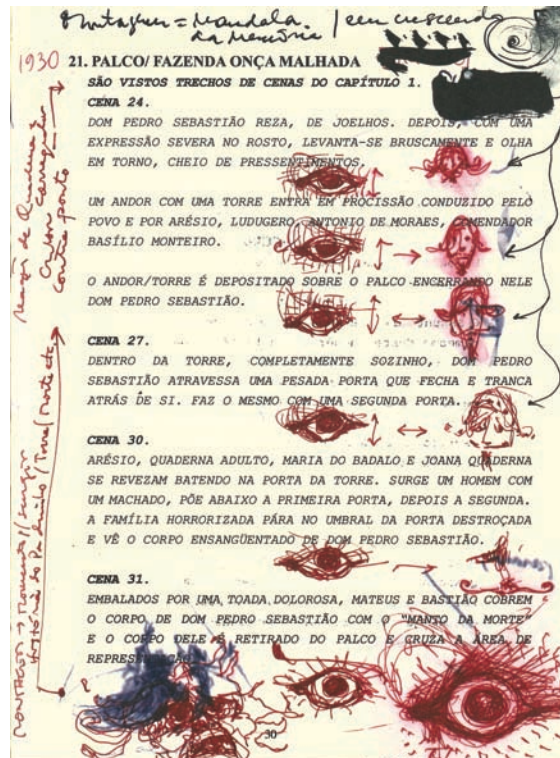 Montagem = Mandala. / em crescendo
da Memória
1930
21. PALCO/ FAZENDA ONÇA MALHADA
SÃO VISTOS TRECHOS DE CENAS DO CAPÍTULO 1.
CENA 24.
DOM PEDRO SEBASTIÃO REZA, DE JOELHOS. DEPOIS, COM UMA
EXPRESSÃO SEVERA NO ROSTO, LEVANTA-SE BRUSCAMENTE E OLHA
EM TORNO, CHEIO DE PRESSENTIMENTOS.
UM ANDOR COM UMA TORRE ENTRA EM PROCISSÃO CONDUZIDO PELO
POVO E POR ARÉSIO, LUDUGERO, ANTONIO DE MORAES, COMENDADOR
BASÍLIO MONTEIRO.
O ANDOR/TORRE É DEPOSITADO SOBRE O PALCO ENCERRANDO NELE
DOM PEDRO SEBASTIÃO.
CENA 27.
DENTRO DA TORRE, COMPLETAMENTE SOZINHO, DOM PEDRO
SEBASTIÃO ATRAVESSA UMA PESADA PORTA QUE FECHA E TRANCA
ATRÁS DE SI. FAZ O MESMO COM UMA SEGUNDA PORTA.
CENA 30.
ARÉSIO, QUADERNA ADULTO, MARIA DO BADALO E JOANA QUADERNA
SE REVEZAM BATENDO NA PORTA DA TORRE. SURGE UM HOMEM COM
UM MACHADO, PÕE ABAIXO A PRIMEIRA PORTA, DEPOIS A SEGUNDA.
A FAMÍLIA HORRORIZADA PÁRA NO UMBRAL DA PORTA DESTROÇADA
E VÊ O CORPO ENSANGÜENTADO DE DOM PEDRO SEBASTIÃO.
CENA 31.
EMBALADOS POR UMA TOADA DOLOROSA, MATEUS E BASTIÃO COBREM
O CORPO DE DOM PEDRO SEBASTIÃO COM O "MANTO DA MORTE"
E O CORPO DELE É RETIRADO DO PALCO E CRUZA A ÁREA DE
REPRESENTAÇÃO.
30
de Quaderna
contra ponto